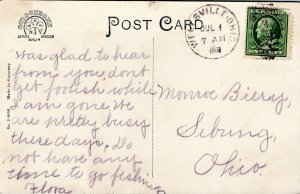 POST CARD
LEIPZIG DRESDEN
BERLIN
JUL 1
7 AM
Made in Germany
was glad to hear
from you, dont
get foolish while
I am gone. We
are pretty busy
these days. Do
not have any
time to go fishing
Flora
Monroe Bierzy,
Sebung,
Ohio.